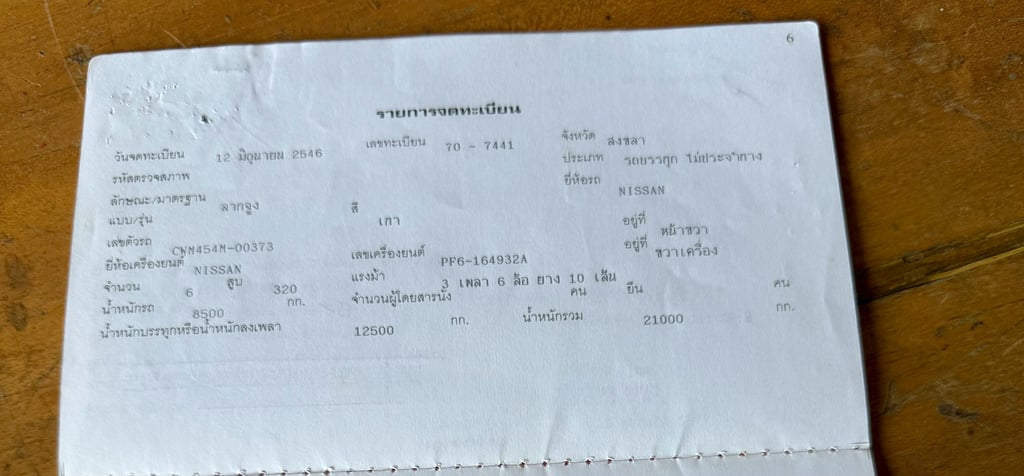 6
รายการจดทะเบียน
วันจดทะเบียน 12 มิถุนายน 2546 เลขทะเบียน 70 - 7441 จังหวัด สงขลา
รหัสตรวจสภาพ ประเภท รถบรรทุก ไม่ประจำทาง
ลักษณะ/มาตรฐาน ลากจูง สี เทา ยี่ห้อรถ NISSAN
แบบ/รุ่น
เลขตัวรถ CWM454M-00373 อยู่ที่ หน้าขวา
ยี่ห้อเครื่องยนต์ NISSAN เลขเครื่องยนต์ PF6-164932A อยู่ที่ ขวาเครื่อง
จำนวน 6 สูบ 320 แรงม้า 3 เพลา 6 ล้อ ยาง 10 เส้น
น้ำหนักรถ 8500 กก. จำนวนผู้โดยสารนั่ง คน ยืน คน
น้ำหนักบรรทุกหรือน้ำหนักลงเพลา 12500 กก. น้ำหนักรวม 21000 กก.